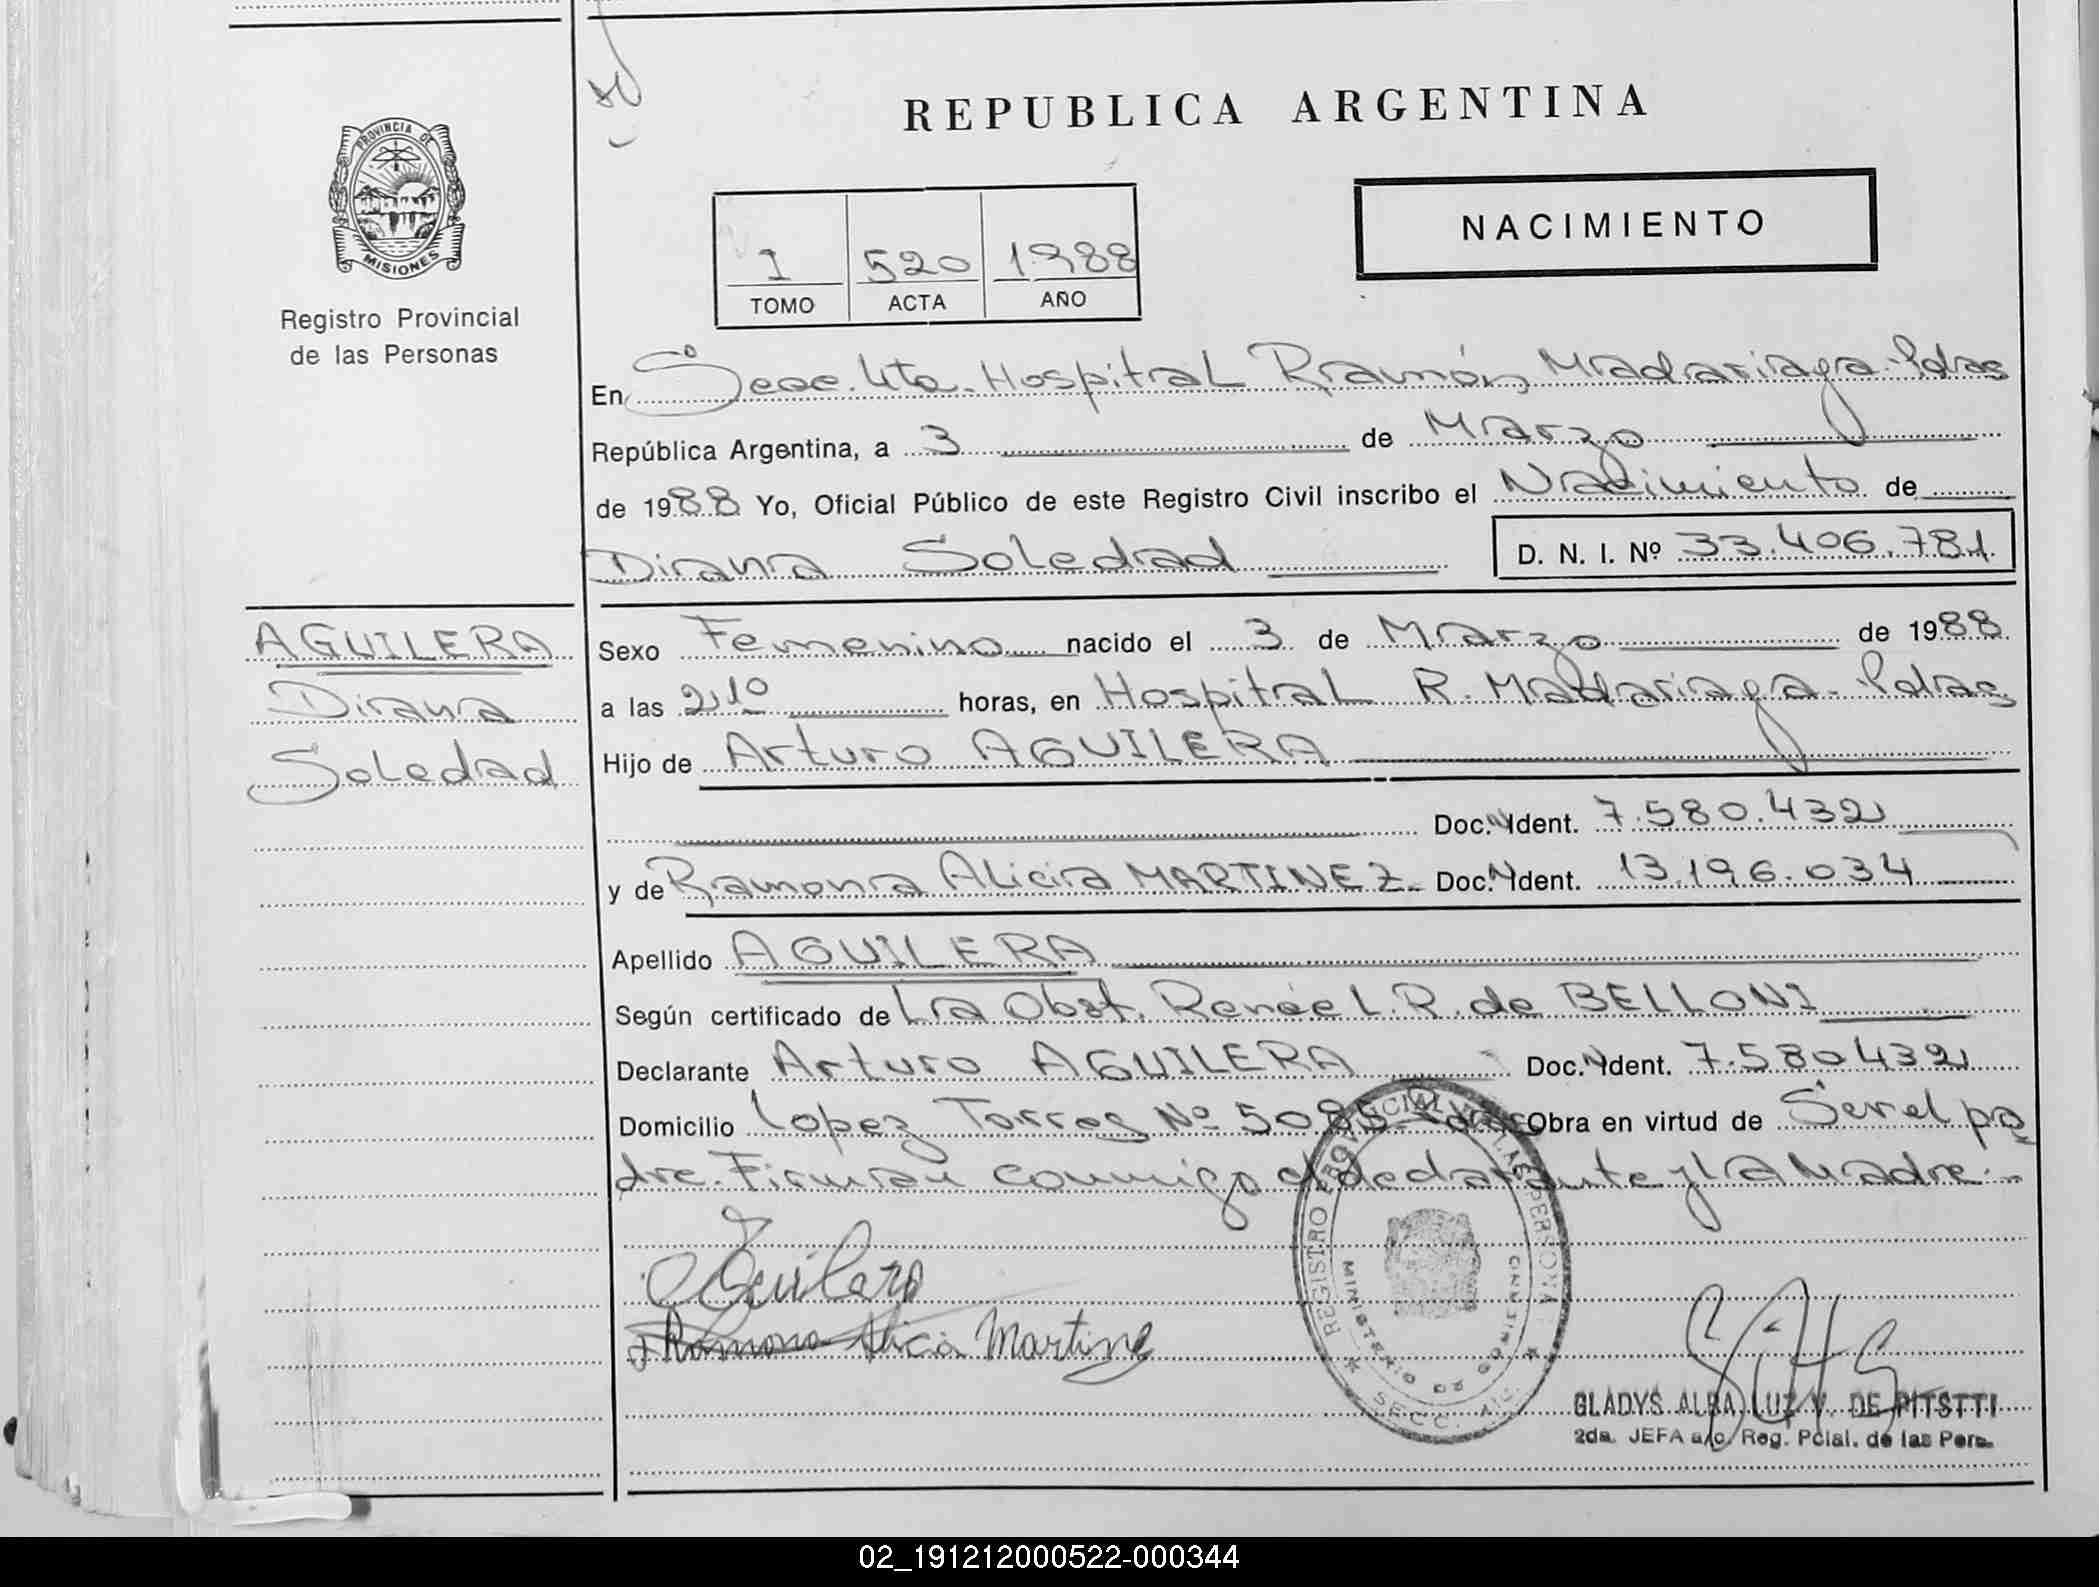 REPUBLICA ARGENTINA
PROVINCIA DE
MISIONES
Registro Provincial
de las Personas
NACIMIENTO
1 520 1988
TOMO ACTA AÑO
En Secc. 4ta. Hospital Ramón Madariaga-Pdas
República Argentina, a 3 de Marzo
de 1988 Yo, Oficial Público de este Registro Civil inscribo el Nacimiento de
Diana Soledad D. N. I. Nº 33.406.781
AGUILERA
Diana
Soledad
Sexo Femenino nacido el 3 de Marzo de 1988
a las 2,10 horas, en Hospital R. Madariaga-Pdas
Hijo de Arturo AGUILERA
Doc. Ident. 7.580.432
y de Ramona Alicia MARTINEZ- Doc. Ident. 13.196.034
Apellido AGUILERA
Según certificado de La Obst. Renée L.R. de BELLONI
Declarante Arturo AGUILERA Doc. Ident. 7.580432
Domicilio Lopez Torres Nº 5085-Pdas Obra en virtud de Ser el pa
dre. Firman conmigo el declarante y la Madre.-
Aguilera
Ramona Alicia Martine
REGISTRO PROVINCIAL DE LAS PERSONAS
MINISTERIO DE GOBIERNO
SECC.
GLADYS ALBA LUZ V. DE PITSTTI
2da. JEFA a/c. Reg. Pcial. de las Pers.
02_191212000522-000344